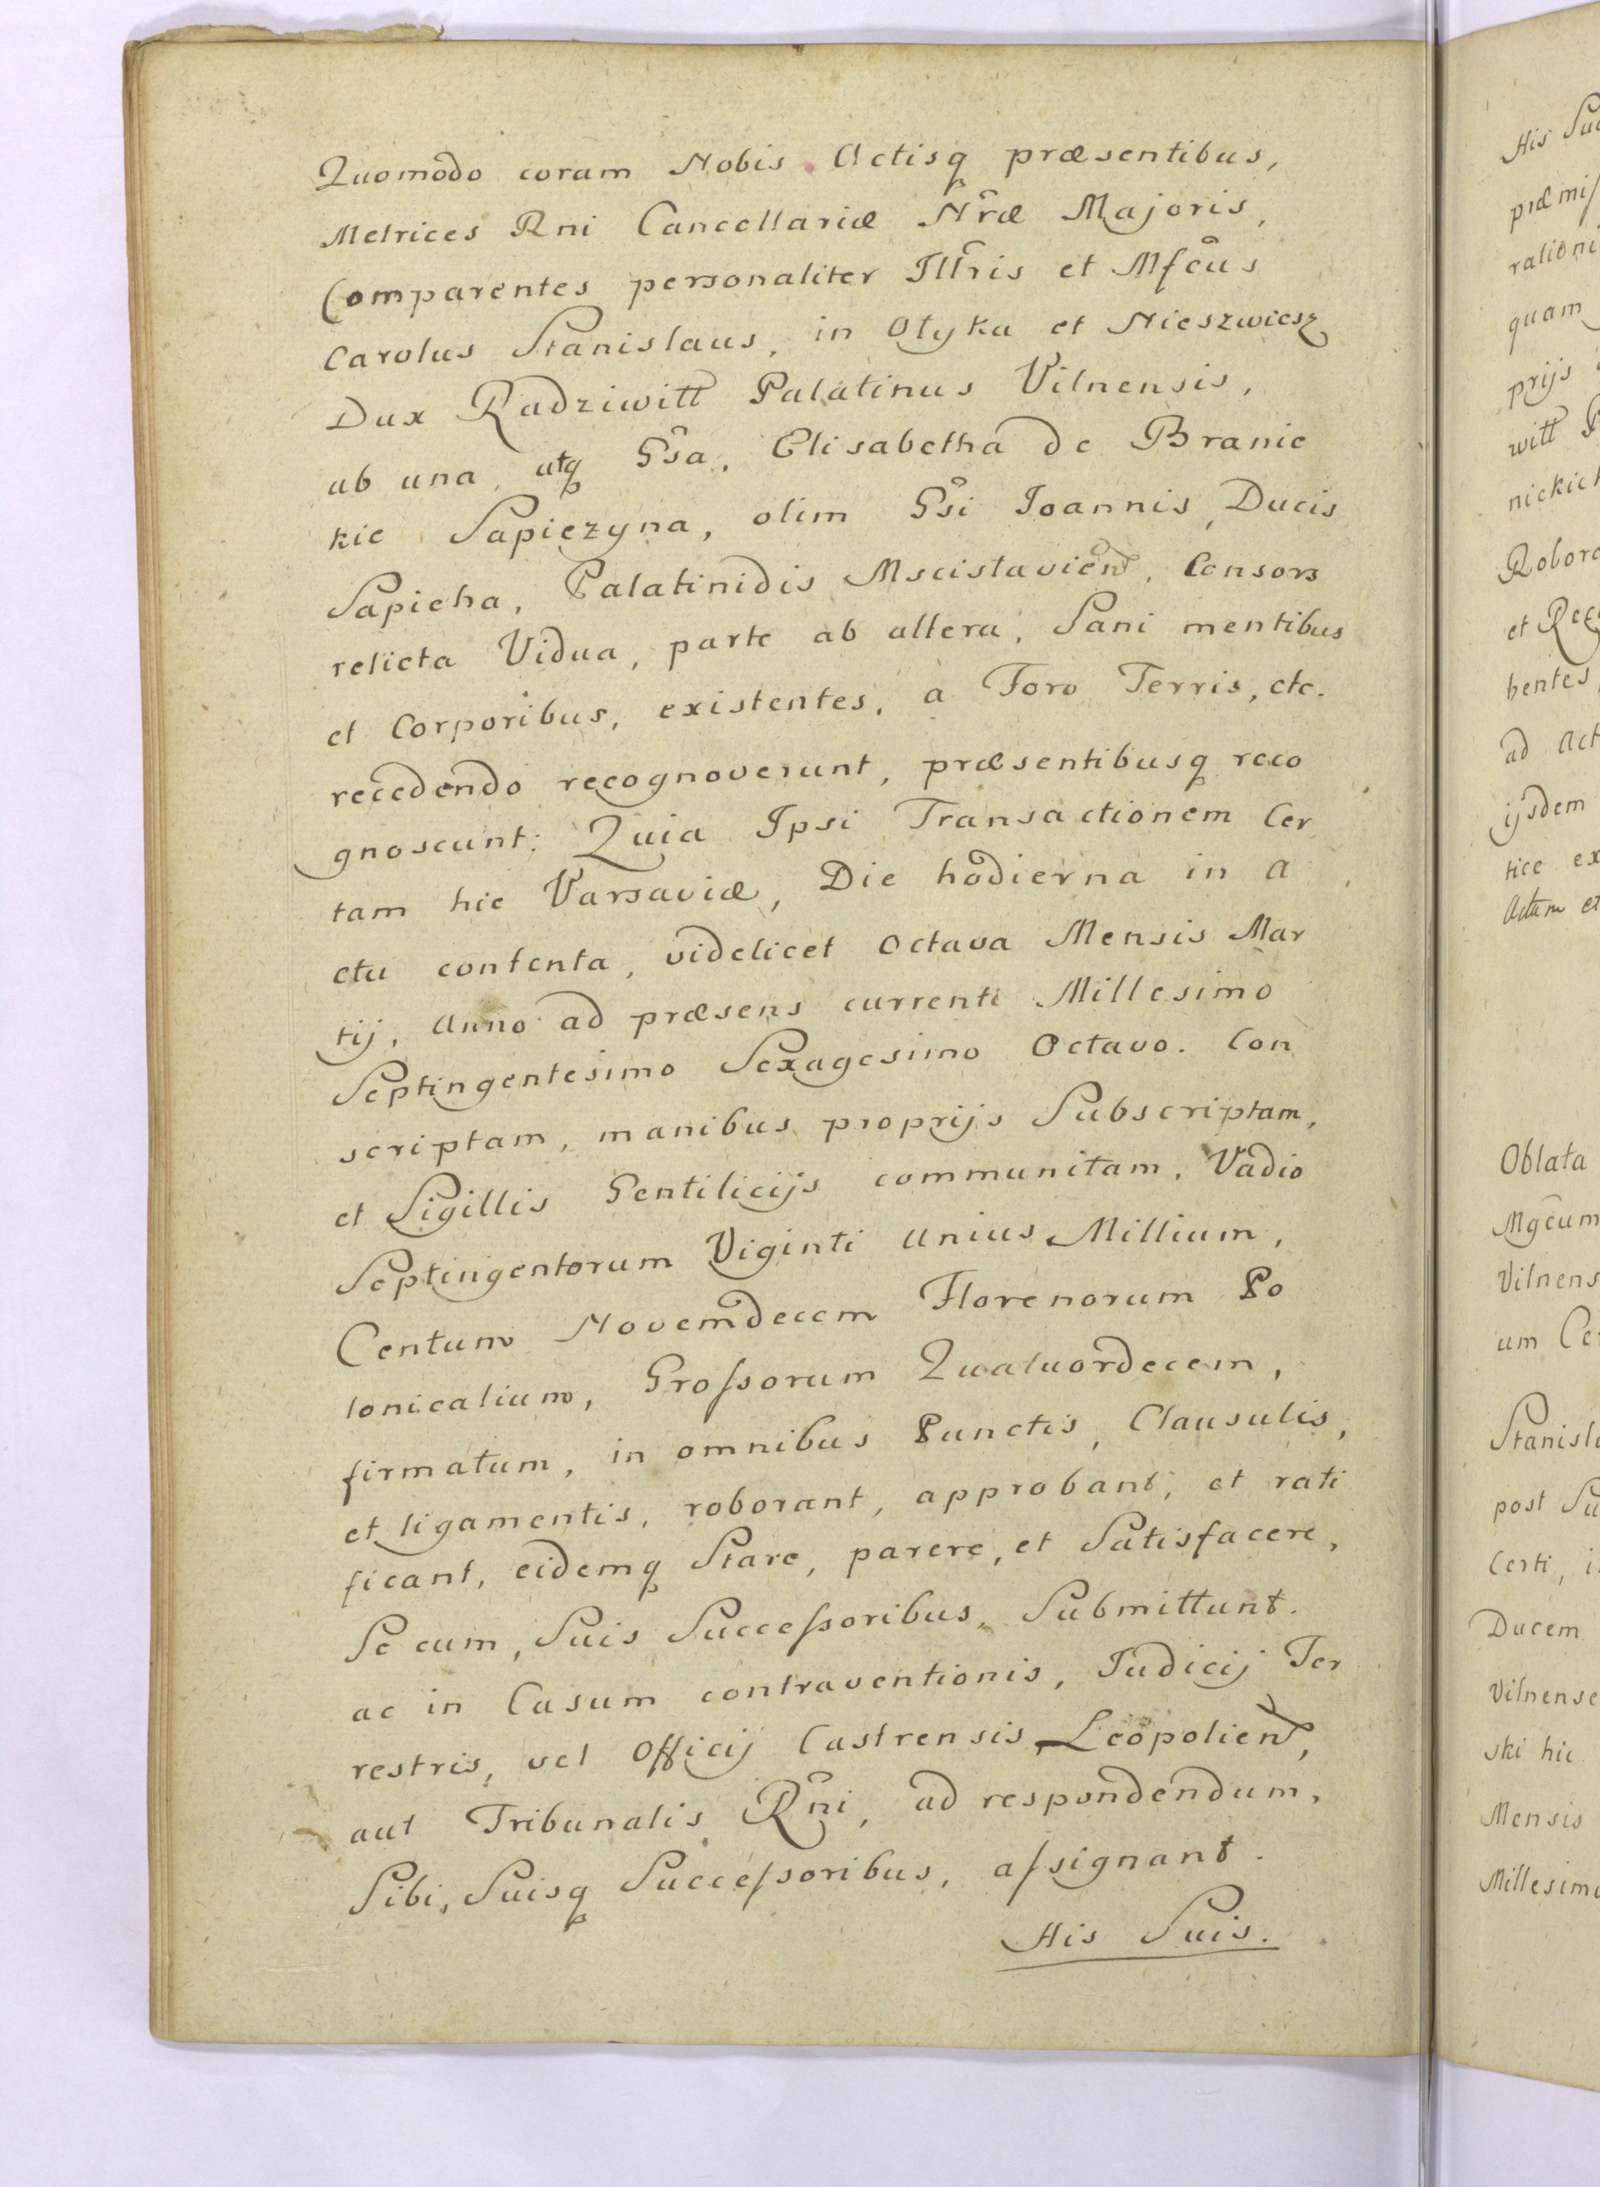 Quomodo coram Nobis Actisq præsentibus,
Metrices Rni Cancellariæ Nræ Majoris,
Comparentes personaliter Illris et Mfcus
Carolus Stanislaus, in Ołyka et Nieszwiesz
Dux Radziwiłł Palatinus Vilnensis,
ab una, atq Gsa, Elisabetha de Branic
kie Sapiezyna, olim Gsi Joannis Ducis
Sapieha, Palatinidis Mscislavien, Consors
relicta Vidua, parte ab altera, Sani mentibus
et Corporibus, existentes, a Foro Terris, etc.
recedendo recognoverunt, præsentibusq reco
gnoscunt: Quia Ipsi Transactionem Cer
tam hic Varsaviæ, Die hodierna in A
ctu contenta, videlicet Octava Mensis Mar
tij, Anno ad præsens currenti Millesimo
Septingentesimo Sexagesimo Octavo. Con
scriptam, manibus proprijs Subscriptam,
et Sigillis Gentilicijs communitam, Vadio
Septingentorum Viginti Unius Millium,
Centum Novemdecem Florenorum Po
lonicalium, Grossorum Quatuordecem,
firmatum, in omnibus Punctis, Clausulis,
et ligamentis, roborant, approbant, et rati
ficant, eidemq Stare, parere, et Satisfacere,
Se cum, Suis Successoribus, Submittunt.
ac in Casum contraventionis, Judicij Ter
restris, vel Officij Castrensis, Leopolien,
aut Tribunalis Rni, ad respondendum,
Sibi, Suisq Successoribus, assignant.
His Suis.
His
præmis
rationi
quam
prijs
wiłł
nickich
Robora
et
bentes
ad Act
ijsdem
tice ex
Actum et
Oblata
Mgcum
Vilnens
um
Stanisla
post
Certi,
Ducem
Vilnense
ski hic
Mensis
Millesimo